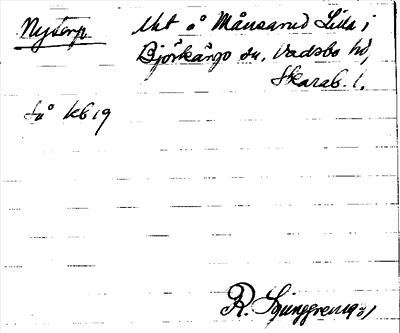 Nytorp Uht å Månsarud Lilla i
Björkängs sn, Vadsbo hd,
Skarab. l.
så kb 19
R. Ljunggren 1931